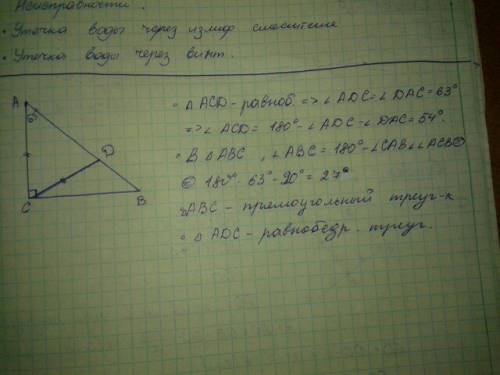 Неисправности.
• Утечка воды через излив смесителя
• Утечка воды через винт.
A
63°
D
C
B
° △ ACD - равноб. => ∠ ADC = ∠ DAC = 63°
=> ∠ ACD = 180° - ∠ ADC - ∠ DAC = 54°.
° В △ ABC, ∠ ABC = 180° - ∠ CAB ∠ ACB ⊜
⊜ 180° - 63° - 90° = 27°
△ABC - прямоугольный треуг-к
° △ ADC - равнобедр. треуг.